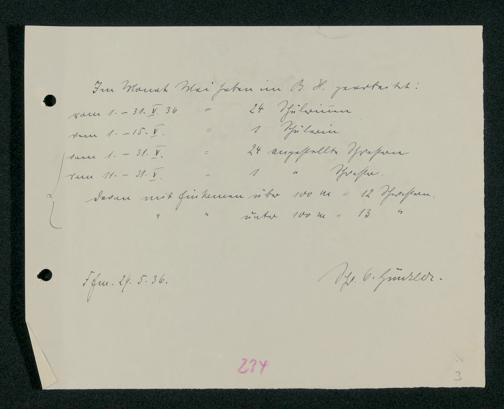 Im Monat Mai haben im B. H. gearbeitet:
vom 1. - 31. V. 36 " 24 Schülerinnen
vom 1. - 15. V. " 1 Schülerin
vom 1. - 31. V. " 24 angestellte Schwestern
vom 11. - 31. V. " 1 " Schwester
davon mit Einkommen über 100 M = 12 Schwestern
" " unter 100 M = 13 "
Ffm. 29. 5. 36.
274
3